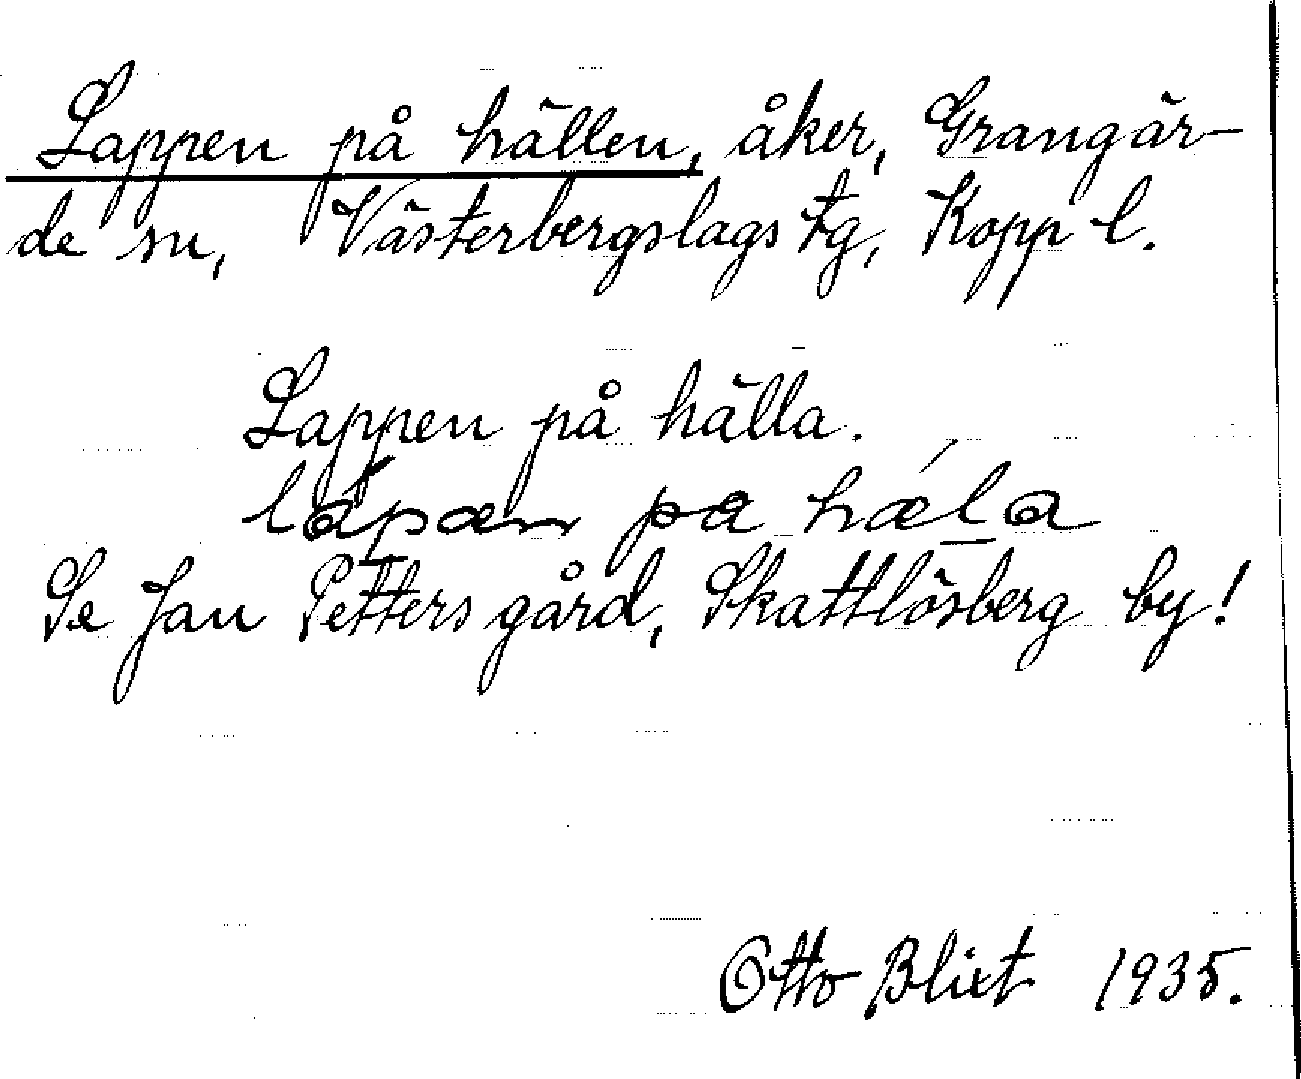 Lappen på hällen, åker, Grangär-
de sn, Västerbergslags tg, Kopp l.
Lappen på hälla.
lápæn pa hǽla
Se Jan Petters gård, Skattlösberg by!
Otto Blixt 1935.